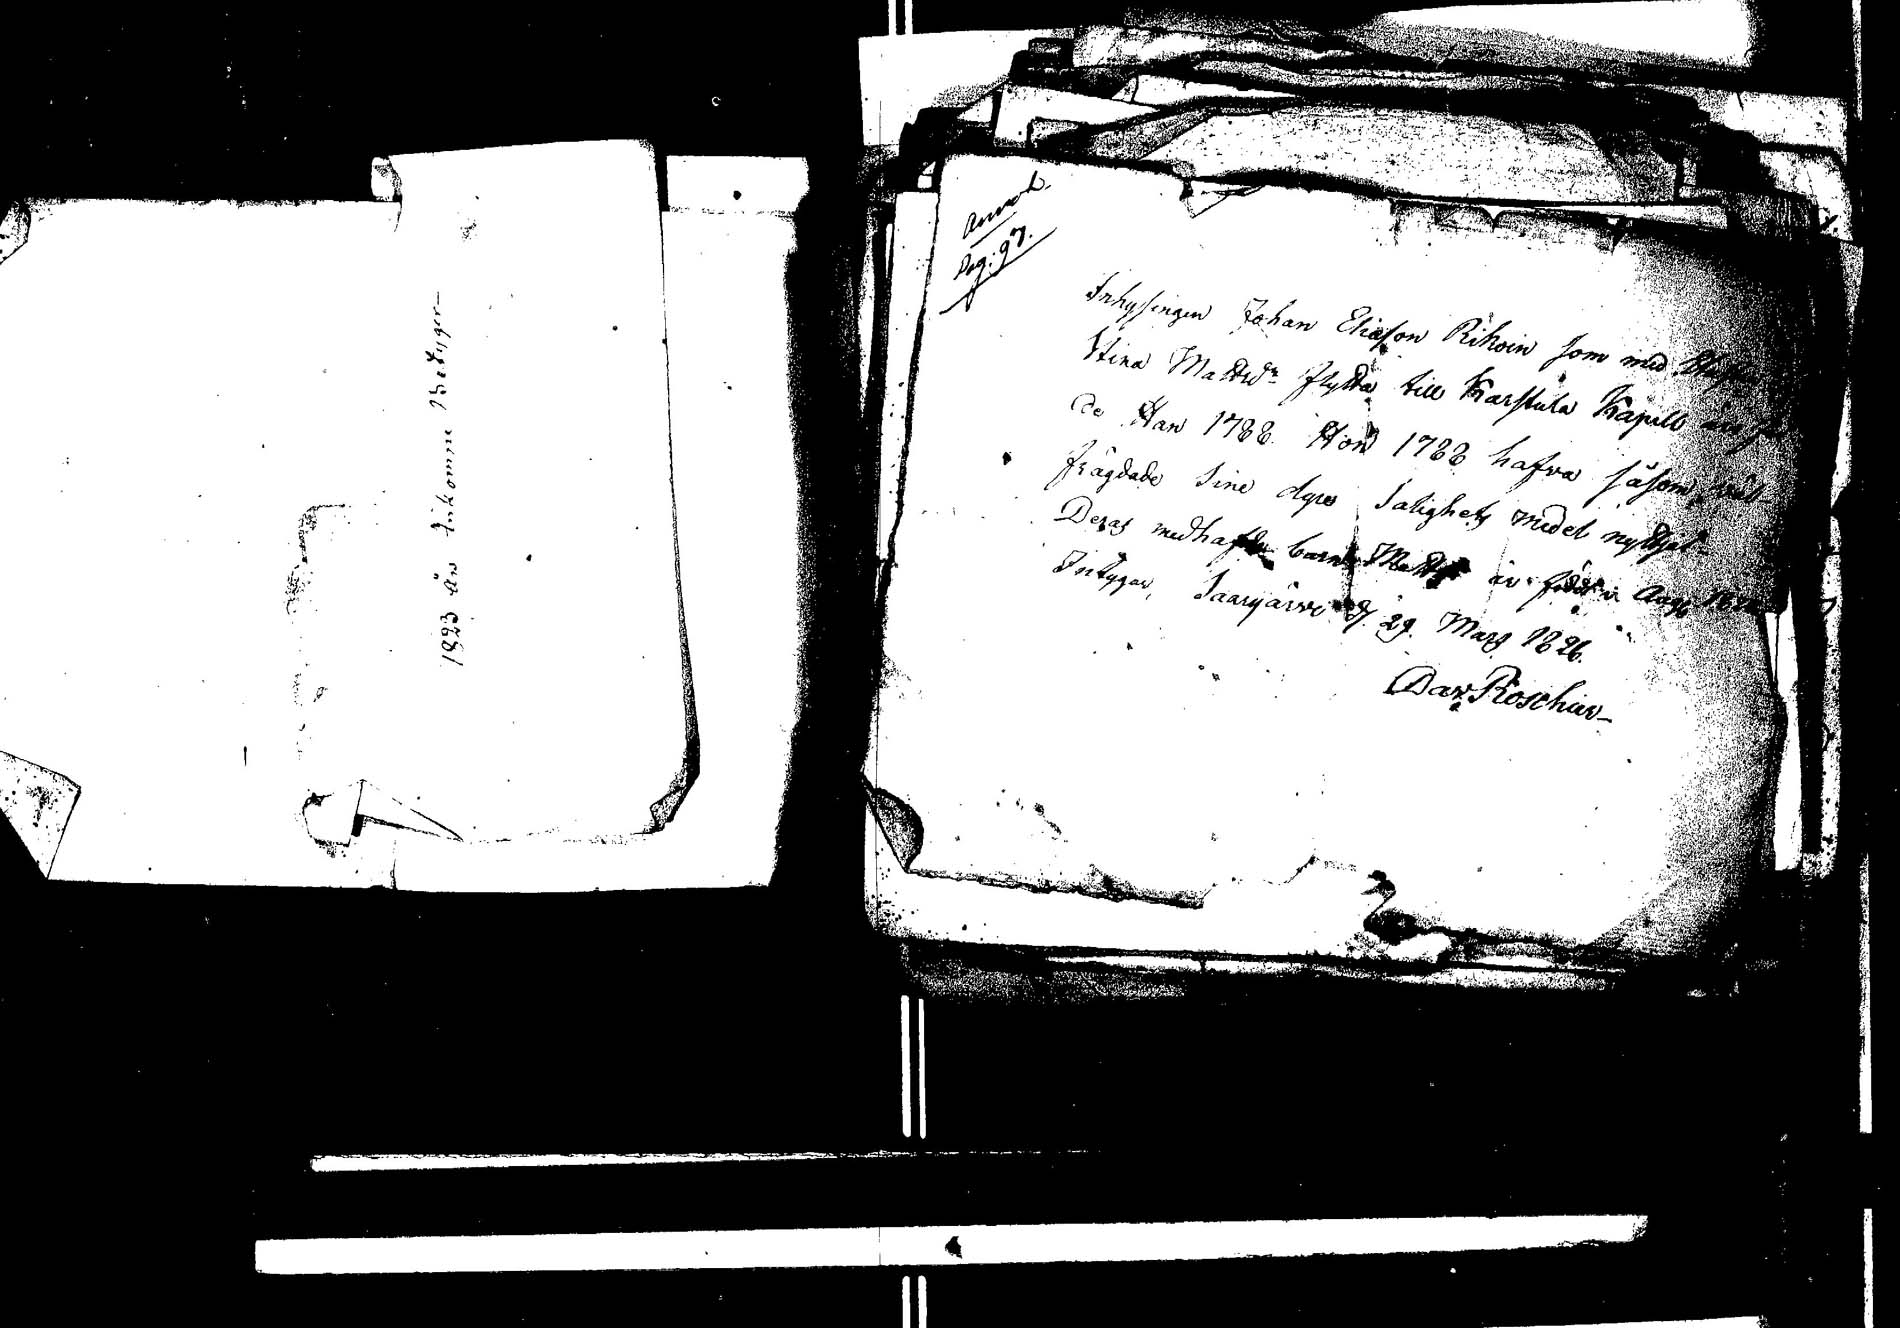 1823 års Inkomne Betyger
Anmäl.
Pag: 97.
Inhysingen Johan Eliasson Rikoin som med Hustru
Stina Mattsdr flytta till Karstula Kapell äro föd-
de Han 1788 Hon 1788 hafva såsom väl
frägdade sine dyra Salighets medel nyttjat.
Deras medhafde barn Matts är född i Aug.
Intygar, Saarijärvi d. 29 Mars 1826.
Dav. Roschier